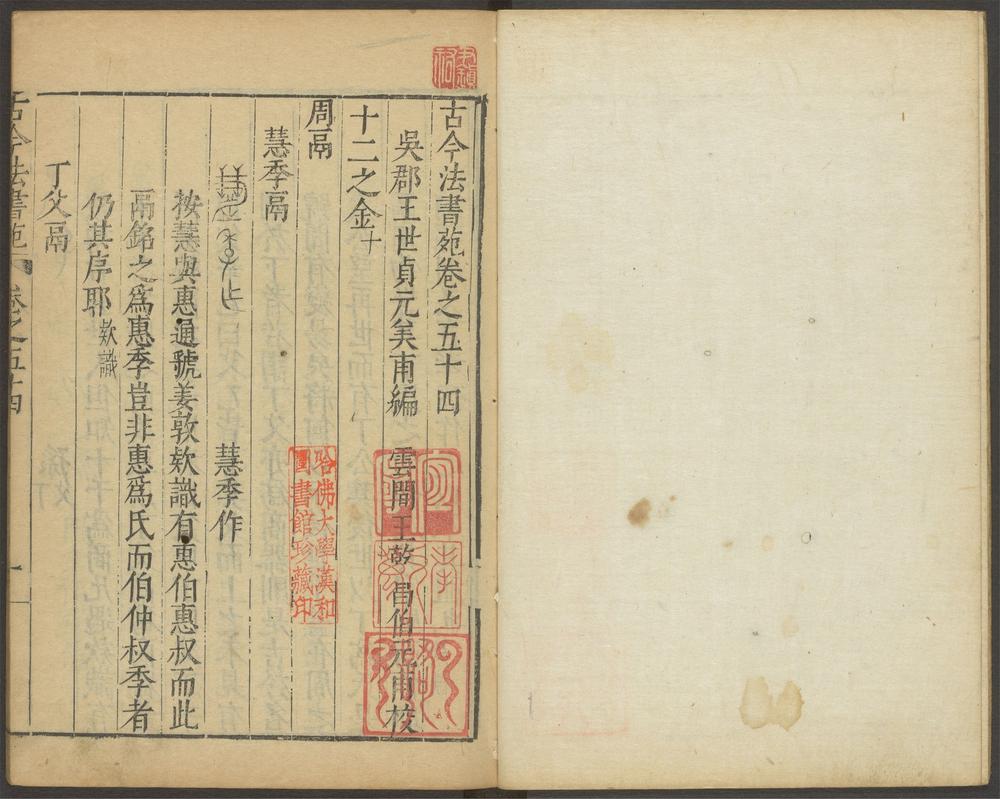 古今法書苑卷之五十四
吳郡王世貞元美甫編 雲間王乾昌伯元甫校
十二之金十
周鬲
慧季鬲
慧季作
按慧與惠通虢姜敦欵識有惠伯惠叔而此
鬲銘之爲惠季豈非惠爲氏而伯仲叔季者
仍其序耶欵識
丁父鬲
古今法書苑 卷之五十四 一
哈佛大學漢和
圖書館珍藏印